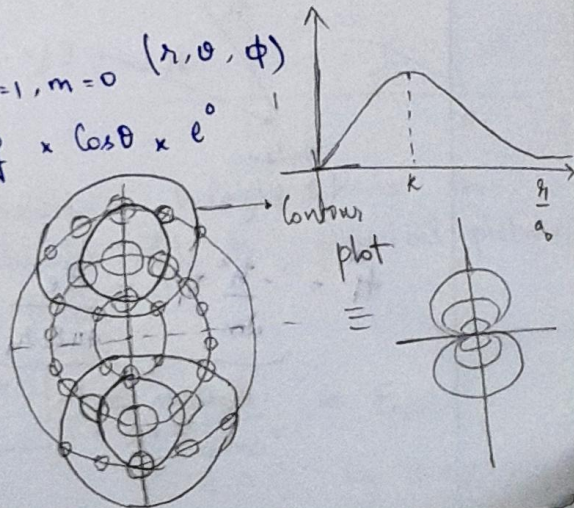 =1, m=0 (r, θ, ϕ)
× Cosθ × e⁰
k
r/a₀
Contour
plot
≡